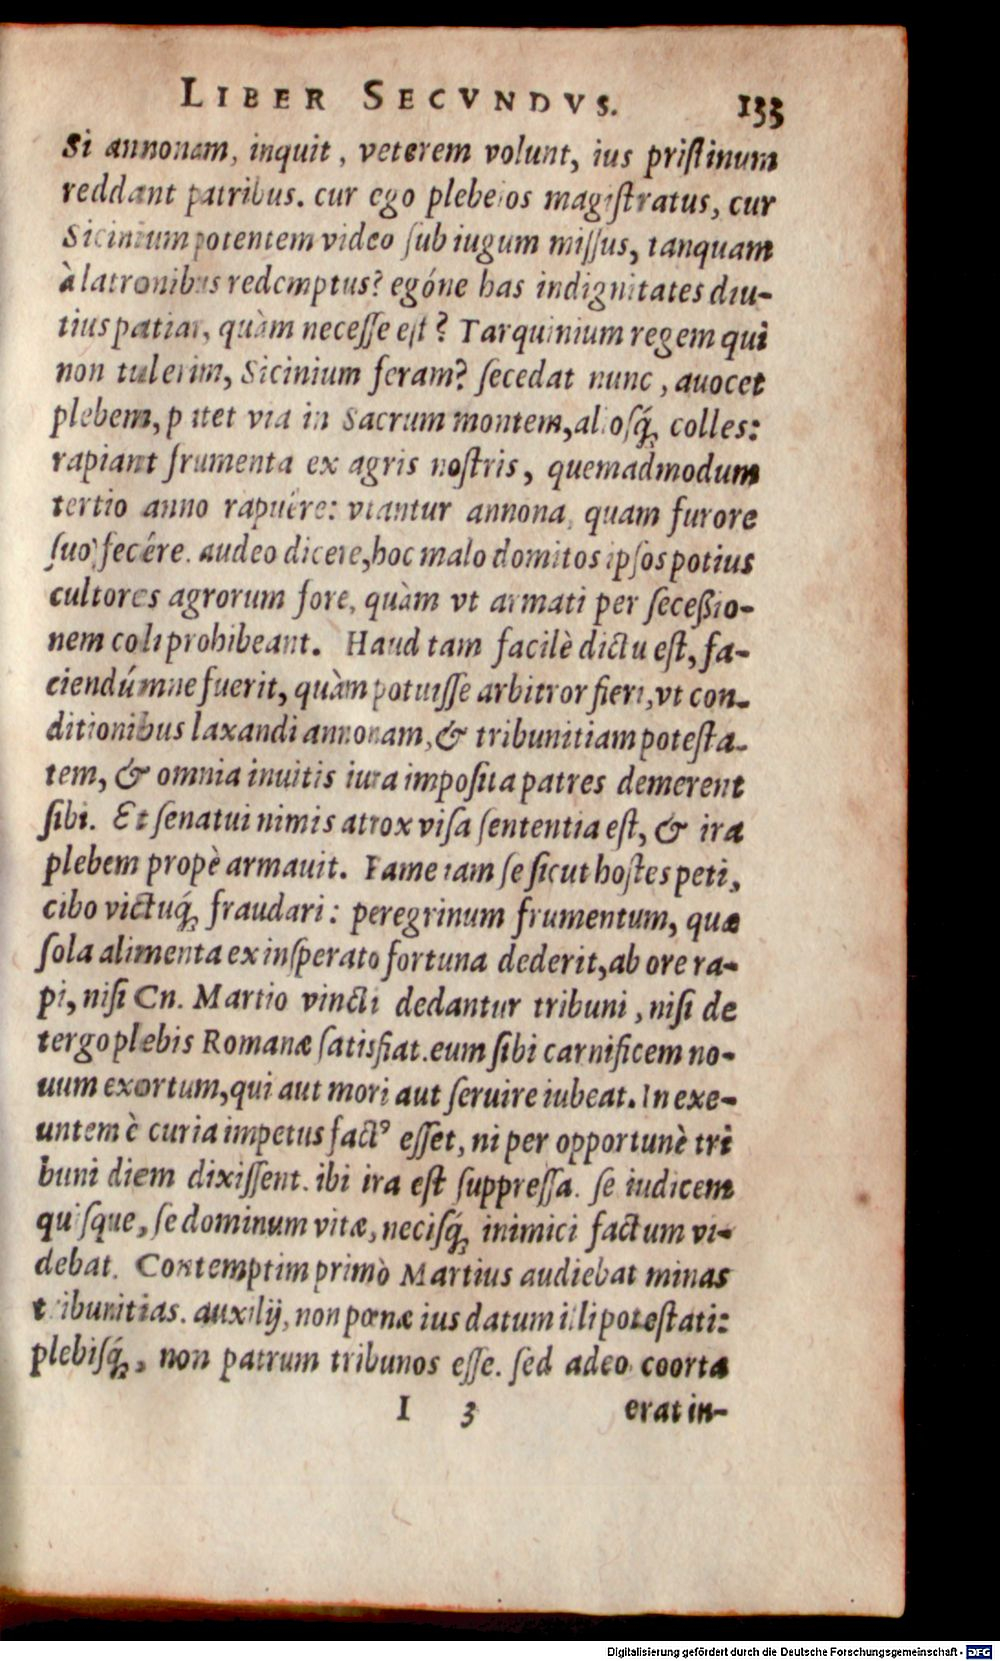 LIBER SECVNDVS. 133
Si annonam, inquit, veterem volunt, ius pristinum
reddant patribus. cur ego plebeios magistratus, cur
Sicinium potentem video sub iugum missus, tanquam
à latronibus redemptus? egóne has indignitates diu-
tius patiar, quàm necesse est? Tarquinium regem qui
non tulerim, Sicinium feram? secedat nunc, auocet
plebem, patet via in Sacrum montem, aliosq́; colles:
rapiant frumenta ex agris nostris, quemadmodum
tertio anno rapuére: vtantur annona, quam furore
suo fecére. audeo dicere, hoc malo domitos ipsos potius
cultores agrorum fore, quàm vt armati per secessio-
nem coli prohibeant. Haud tam facilè dictu est, fa-
ciendúmne fuerit, quàm potuisse arbitror fieri, vt con-
ditionibus laxandi annonam, & tribunitiam potesta-
tem, & omnia inuitis iura imposita patres demerent
sibi. Et senatui nimis atrox visa sententia est, & ira
plebem propè armauit. Fame iam se sicut hostes peti,
cibo victuq́; fraudari: peregrinum frumentum, quæ
sola alimenta ex insperato fortuna dederit, ab ore ra-
pi, nisi Cn. Martio vincti dedantur tribuni, nisi de
tergo plebis Romanæ satisfiat. eum sibi carnificem no-
uum exortum, qui aut mori aut seruire iubeat. In exe-
untem è curia impetus factꝰ esset, ni per opportunè tri
buni diem dixissent. ibi ira est suppressa. se iudicem
quisque, se dominum vitæ, necisq́; inimici factum vi-
debat. Contemptim primò Martius audiebat minas
tribunitias. auxilij, non pœnæ ius datum illi potestati:
plebisq́;, non patrum tribunos esse. sed adeo coorta
I 3 erat in-
Digitalisierung gefördert durch die Deutsche Forschungsgemeinschaft - DFG